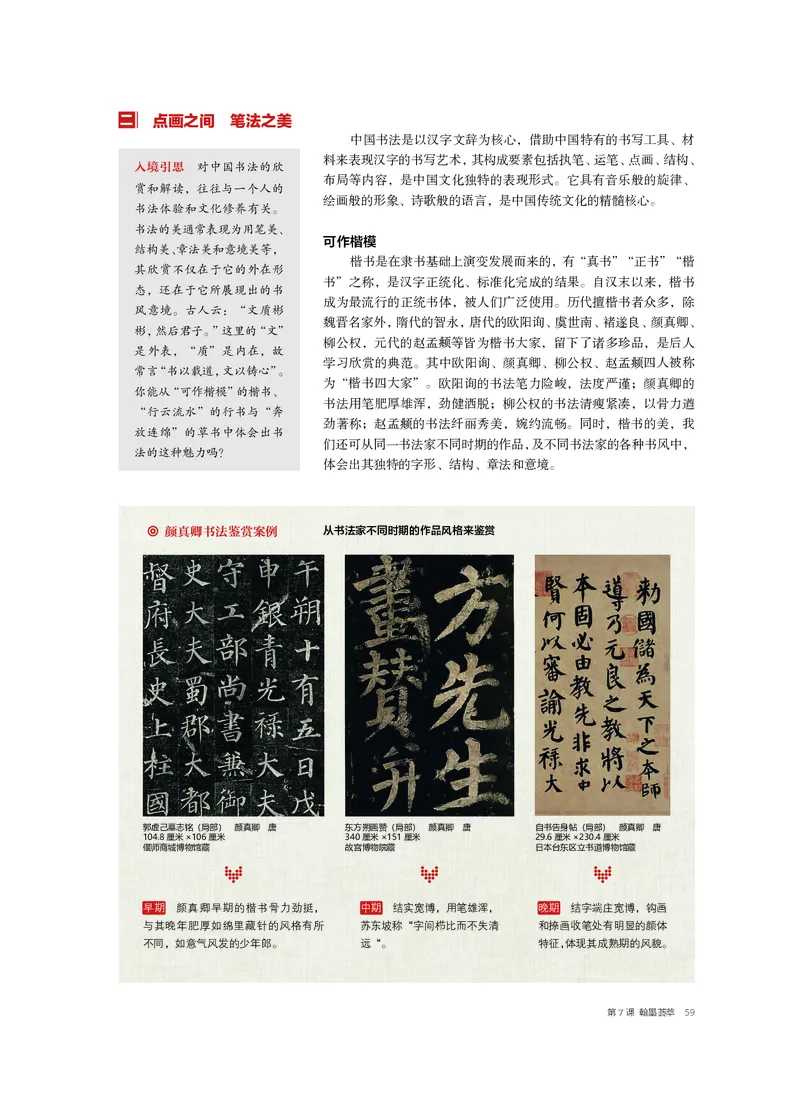 二 点画之间 笔法之美
入境引思 对中国书法的欣
赏和解读，往往与一个人的
书法体验和文化修养有关。
书法的美通常表现为用笔美、
结构美、章法美和意境美等，
其欣赏不仅在于它的外在形
态，还在于它所展现出的书
风意境。古人云：“文质彬
彬，然后君子。”这里的“文”
是外表，“质”是内在，故
常言“书以载道，文以铸心”。
你能从“可作楷模”的楷书、
“行云流水”的行书与“奔
放连绵”的草书中体会出书
法的这种魅力吗？
中国书法是以汉字文辞为核心，借助中国特有的书写工具、材
料来表现汉字的书写艺术，其构成要素包括执笔、运笔、点画、结构、
布局等内容，是中国文化独特的表现形式。它具有音乐般的旋律、
绘画般的形象、诗歌般的语言，是中国传统文化的精髓核心。
可作楷模
楷书是在隶书基础上演变发展而来的，有“真书”“正书”“楷
书”之称，是汉字正统化、标准化完成的结果。自汉末以来，楷书
成为最流行的正统书体，被人们广泛使用。历代擅楷书者众多，除
魏晋名家外，隋代的智永，唐代的欧阳询、虞世南、褚遂良、颜真卿、
柳公权，元代的赵孟頫等皆为楷书大家，留下了诸多珍品，是后人
学习欣赏的典范。其中欧阳询、颜真卿、柳公权、赵孟頫四人被称
为“楷书四大家”。欧阳询的书法笔力险峻，法度严谨；颜真卿的
书法用笔肥厚雄浑，劲健洒脱；柳公权的书法清瘦紧凑，以骨力遒
劲著称；赵孟頫的书法纤丽秀美，婉约流畅。同时，楷书的美，我
们还可从同一书法家不同时期的作品，及不同书法家的各种书风中，
体会出其独特的字形、结构、章法和意境。
颜真卿书法鉴赏案例 从书法家不同时期的作品风格来鉴赏
午朔十有五日戊
申銀青光禄大夫
守工部尚書兼御
史大夫蜀郡大都
督府長史上柱國
方先生
畫贊并
勑國儲為天下之本師
導乃元良之教將以
本固必由教先非求中
賢何以審諭光禄大
郭虚己墓志铭（局部） 颜真卿 唐
104.8 厘米 ×106 厘米
偃师商城博物馆藏
东方朔画赞（局部） 颜真卿 唐
340 厘米 ×151 厘米
故宫博物院藏
自书告身帖（局部） 颜真卿 唐
29.6 厘米 ×230.4 厘米
日本台东区立书道博物馆藏
早期 颜真卿早期的楷书骨力劲挺，
与其晚年肥厚如绵里藏针的风格有所
不同，如意气风发的少年郎。
中期 结实宽博，用笔雄浑，
苏东坡称“字间栉比而不失清
远“。
晚期 结字端庄宽博，钩画
和捺画收笔处有明显的颜体
特征，体现其成熟期的风貌。
第 7 课 翰墨荟萃 59